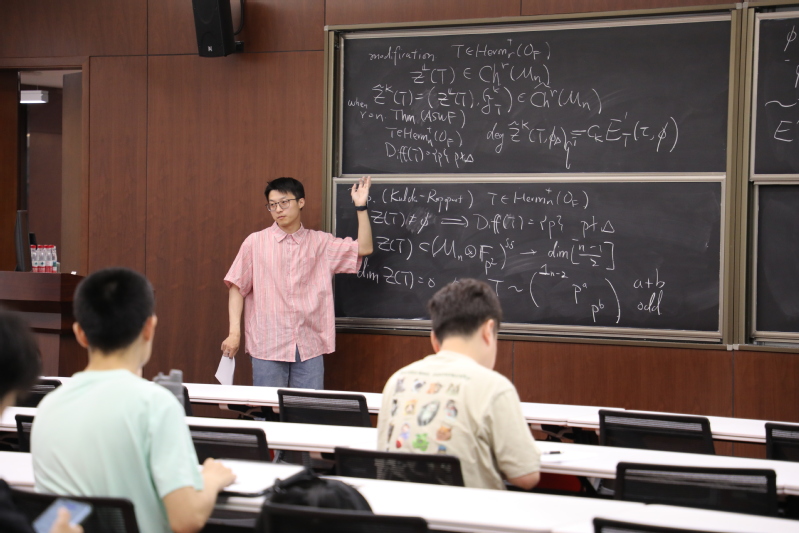 modification T ∈ Herm_n^+(O_F)
Z^k(T) ∈ Ch^r(M_n)
Ẑ^k(T) = (Z^k(T), G_T^k) ∈ Ĉh^r(M_n)
when r=n. Thm (ASWF)
T ∈ Herm_n^+(O_F) deg Ẑ^k(T, φ) = C_k E'_T(τ, φ)
Diff(T) = {p} p∤Δ
p. (Kudla-Rapoport) T ∈ Herm_n^+(O_F)
Z(T) ≠ ∅ ⟹ Diff(T) = {p} p∤Δ
Z(T) ⊂ (M_n ⊗ F_{p^2})^{ss} → dim [n-1/2]
dim Z(T) = 0 T ~ (1_{n-2} p^a p^b) a+b odd
φ
~
E'